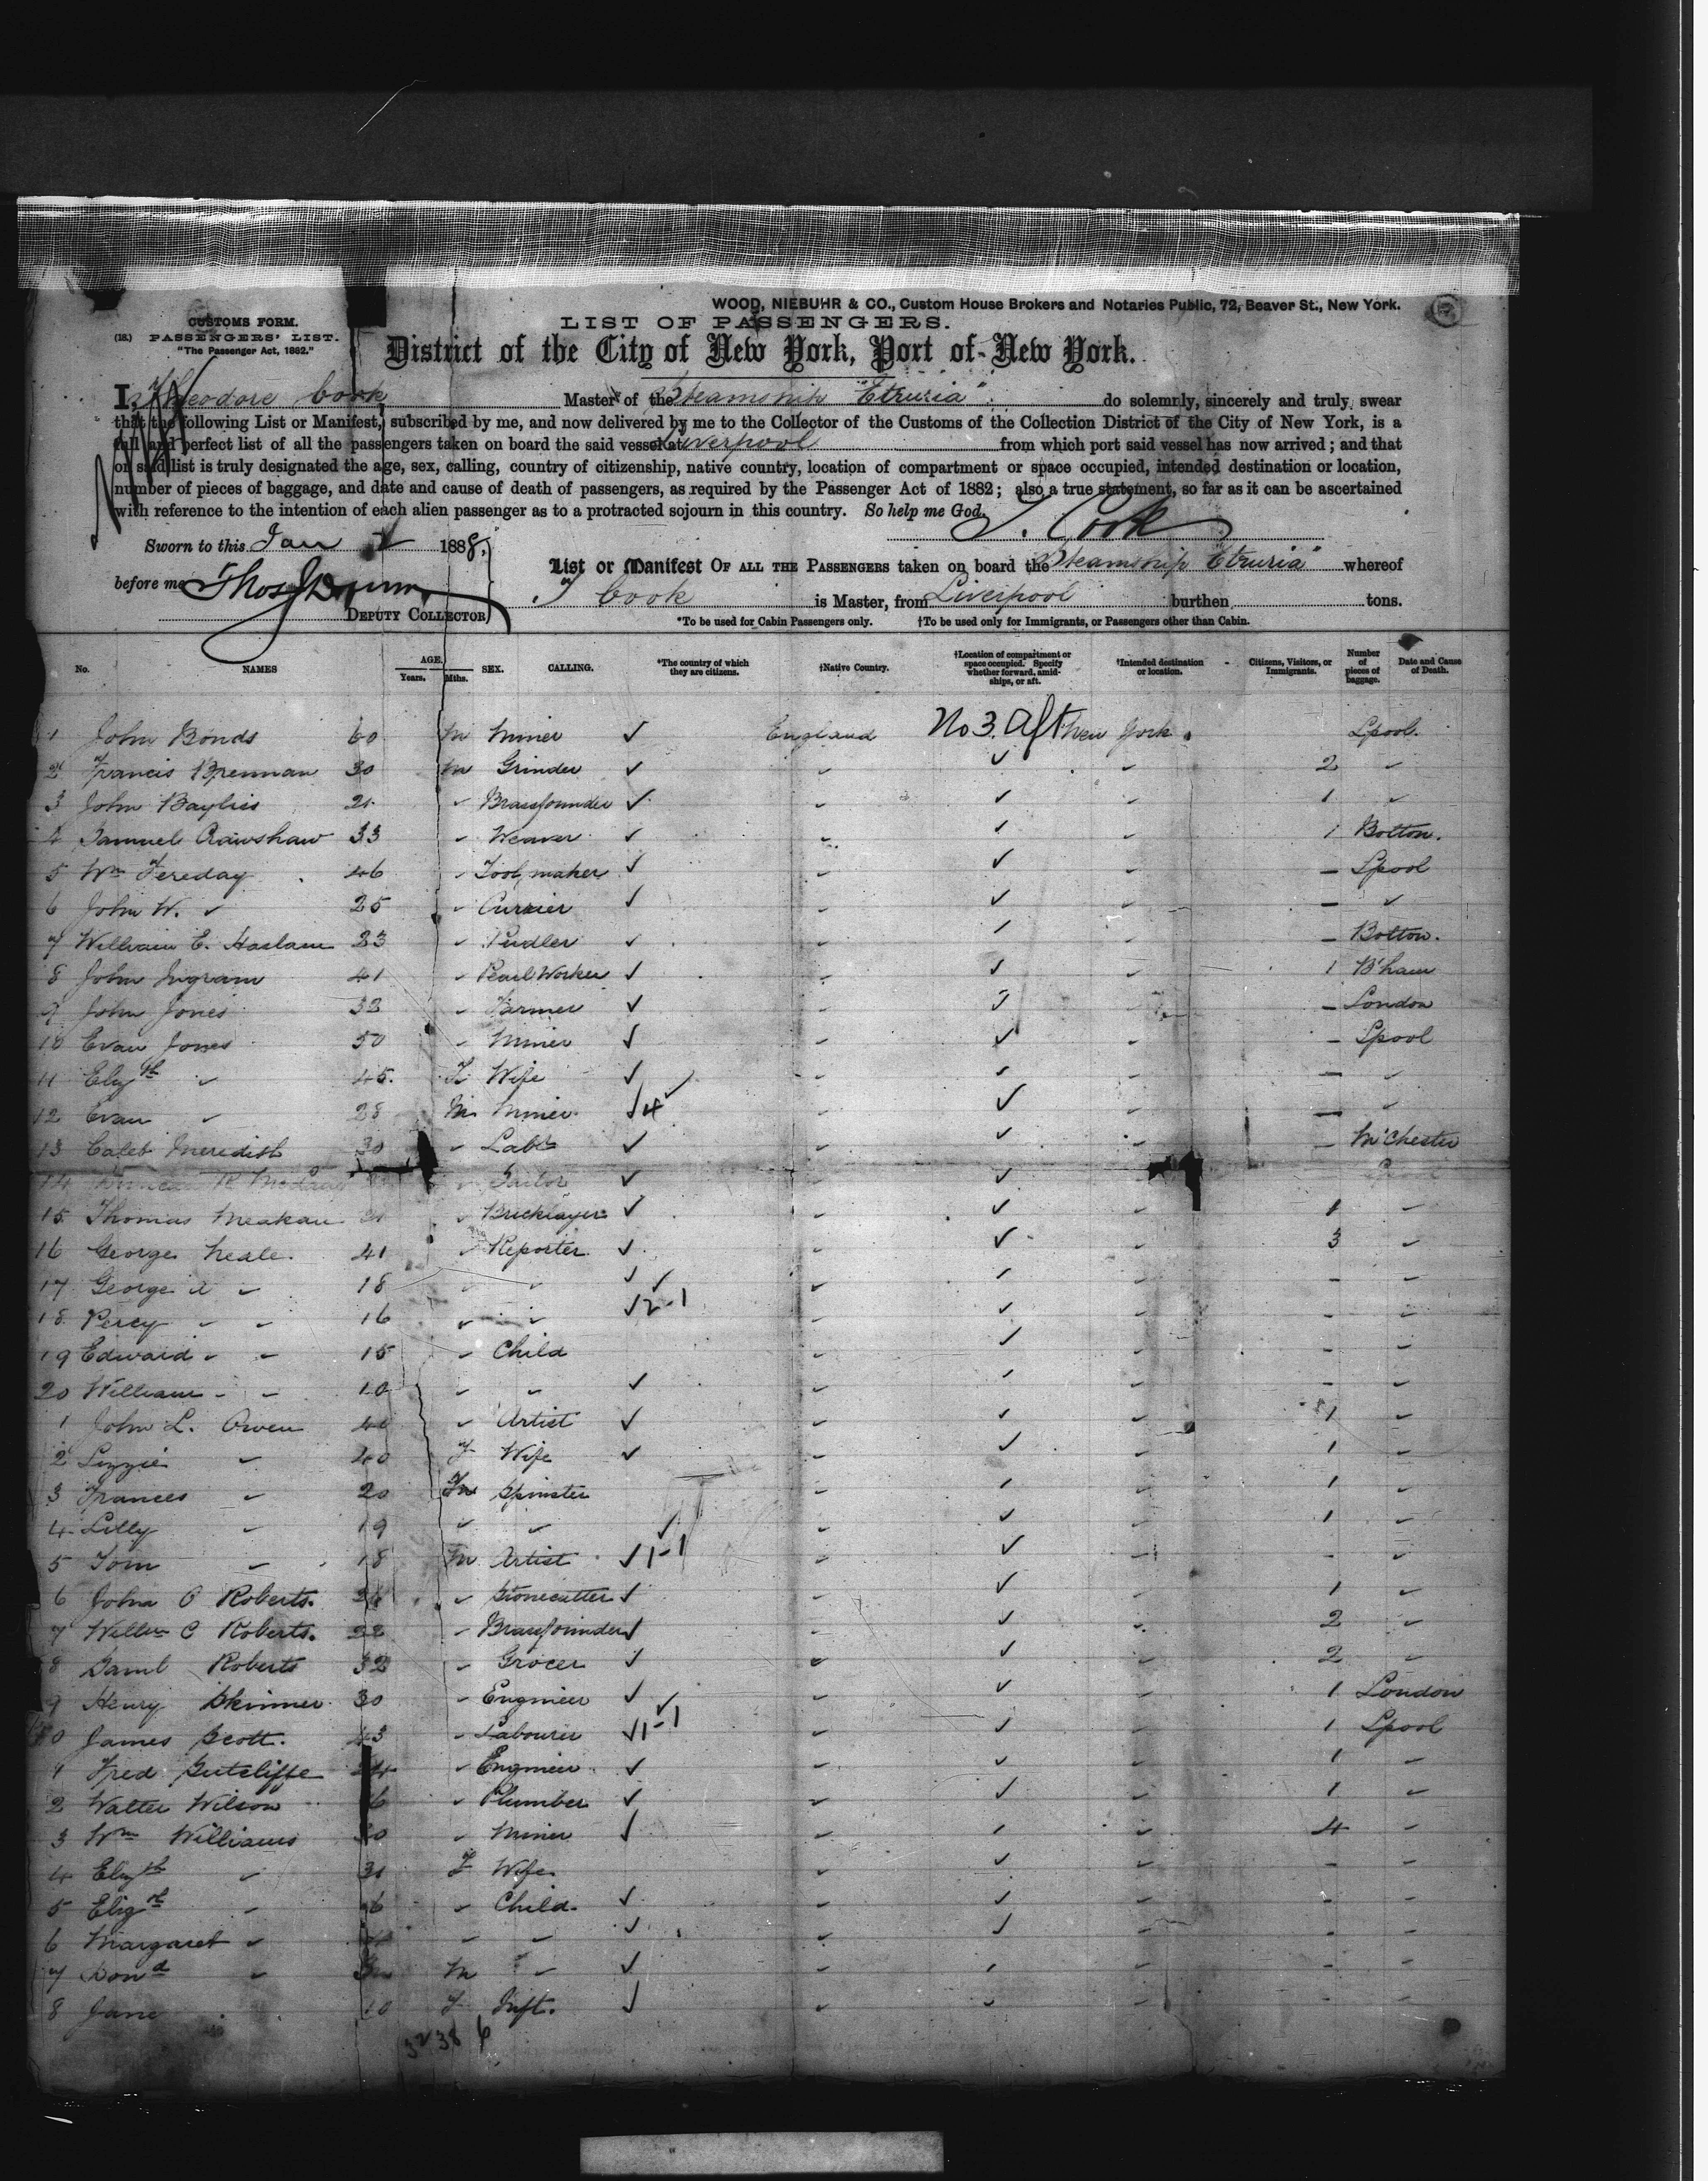 WOOD, NIEBUHR & CO., Custom House Brokers and Notaries Public, 72, Beaver St., New York.
CUSTOMS FORM.
(18.) PASSENGERS' LIST.
"The Passenger Act, 1882."
LIST OF PASSENGERS.
District of the City of New York, Port of New York.
I, Theodore Cook Master of the Steamship "Etruria" do solemnly, sincerely and truly swear
that the following List or Manifest, subscribed by me, and now delivered by me to the Collector of the Customs of the Collection District of the City of New York, is a
full and perfect list of all the passengers taken on board the said vessel at Liverpool from which port said vessel has now arrived; and that
on said list is truly designated the age, sex, calling, country of citizenship, native country, location of compartment or space occupied, intended destination or location,
number of pieces of baggage, and date and cause of death of passengers, as required by the Passenger Act of 1882; also a true statement, so far as it can be ascertained
with reference to the intention of each alien passenger as to a protracted sojourn in this country. So help me God.
T. Cook
Sworn to this Jan 1888,
before me Thos
DEPUTY COLLECTOR
List or Manifest OF ALL THE PASSENGERS taken on board the Steamship "Etruria" whereof
T Cook is Master, from Liverpool burthen tons.
*To be used for Cabin Passengers only. †To be used only for Immigrants, or Passengers other than Cabin.
No. NAMES AGE. Years. Mths. SEX. CALLING. *The country of which they are citizens. †Native Country. †Location of compartment or space occupied. Specify whether forward, amidships, or aft. †Intended destination or location. Citizens, Visitors, or Immigrants. Number of pieces of baggage. Date and Cause of Death.
1 John Bonds 60 M Miner ✓ England No 3. Aft New York. Lpool.
2 Francis Brennan 30 M Grinder ✓ 2 "
3 John Bayliss 21 " Brassfounder ✓ 1 "
4 Samuel Crawshaw 33 " Weaver ✓ 1 Bolton.
5 Wm Fereday 46 " Tool maker ✓ - Lpool
6 John W. " 25 " Currier ✓ - "
7 William E. Haslam 23 " Pudler ✓ - Bolton.
8 John Ingram 41 " Pearl Worker ✓ 1 B'ham
9 John Jones 32 " Farmer ✓ - London
10 Evan Jones 50 " Miner ✓ - Lpool
11 Elizth " 45. F Wife ✓ - "
12 Evan " 28 M Miner ✓ 4 - "
13 Caleb Meredith 30 " Labr ✓ - M'Chester
14 " Tailor ✓
15 Thomas " Bricklayer ✓ 1 "
16 George Neale. 41 " Reporter ✓ 3 "
17 George " 18 " " ✓ - "
18 Percy " " 16 " " ✓ 2-1 - "
19 Edward " " 15 " Child - "
20 William " " 10 " " ✓ - "
1 John L. Owen 40 " Artist ✓ 1 "
2 Lizzie " 40 F Wife ✓ 1 "
3 Frances " 20 Spinster 1 "
4 Lilly " 19 " " 1 "
5 Tom " 18 M Artist ✓ 1-1 - "
6 John O Roberts. " Stonecutter ✓ 1 "
7 Willm C Roberts. 22 " Brassfounder ✓ 2 "
8 Saml Roberts 32 " Grocer ✓ 2 "
9 Henry Skinner 30 " Engineer ✓ 1 London
0 James Scott. 43 " Labourer ✓ 1-1 1 Lpool
1 Fred Sutcliffe " Engineer ✓ 1 "
2 Walter Wilson " Plumber ✓ 1 "
3 Wm Williams " Miner ✓ 4 "
4 Elizth " F Wife - "
5 Elizth " " Child ✓ - "
6 Margaret " " " ✓ - "
7 " M " ✓ - "
8 Jane 10 F Inft. ✓ - "
32 38 6